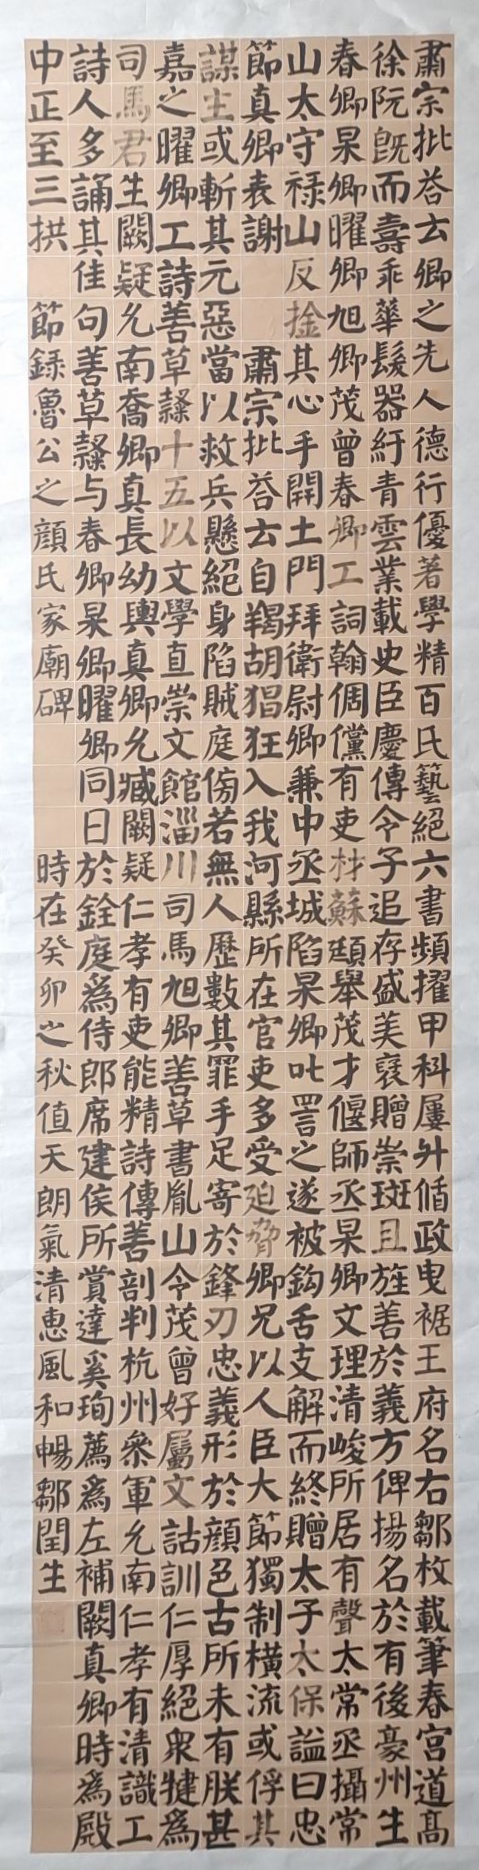 肅宗批荅云卿之先人德行優著學精百氏藝絕六書頻擢甲科屢升循政曳裾王府名右鄒枚載筆春宮道髙
徐阮既而壽乖華髮器紆青雲業載史臣慶傳令子追存盛美襃贈崇班且旌善於義方俾揚名於有後豪州生
春卿杲卿曜卿旭卿茂曾春卿工詞翰倜儻有吏材蘇頲舉茂才偃師丞杲卿文理清峻所居有聲太常丞攝常
山太守禄山反捦其心手開土門拜衛尉卿兼中丞城陷杲卿叱詈之遂被鈎舌支解而終贈太子太保謚曰忠
節真卿表謝 肅宗批荅云自羯胡猖狂入我河縣所在官吏多受廹脅卿兄以人臣大節獨制橫流或俘其
謀主或斬其元惡當以救兵懸絕身陷賊庭傍若無人歷數其罪手足寄於鋒刃忠義形於顔色古所未有朕甚
嘉之曜卿工詩善草隸十五以文學直崇文館淄川司馬旭卿善草書胤山令茂曾好屬文詁訓仁厚絕衆犍為
司馬君生闕疑允南喬卿真長幼輿真卿允臧闕疑仁孝有吏能精詩傳善剖判杭州叅軍允南仁孝有清識工
詩人多誦其佳句善草隸与春卿杲卿曜卿同日於銓庭為侍郎席建侯所賞達奚珣薦為左補闕真卿時為殿
中正至三拱 節録魯公之顔氏家廟碑 時在癸卯之秋值天朗氣清惠風和暢鄒閏生